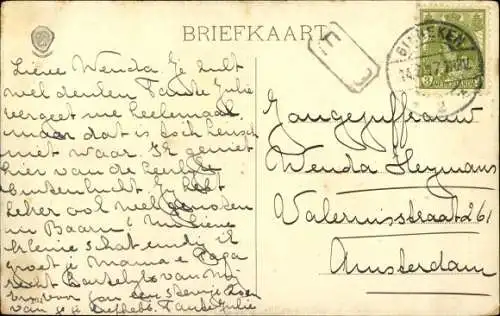 BRIEFKAART
GINNEKEN
Lieve Wenda. Je zult
wel denken Tante Julie
vergeet me heelemaal
maar dat is toch heusch
niet waar. Ik geniet
hier van de heerlijke
buitenlucht. Je hebt
zeker ook veel genoten
in Baarn? Nu lieve
kleine schat endig ik
groet je mama & Papa
recht hartelijk van mij
en een zoen
van je je liefhebb. Tante Julie
Jongejuffrouw
Wenda Heymans
Valeriusstraat 261
Amsterdam